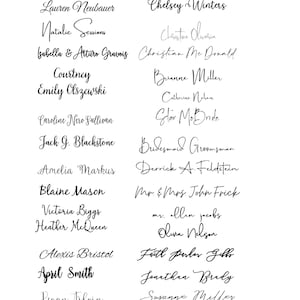 Lauren Neubauer
Natalie Sessions
Isabella & Arturo Gravois
Courtney
Emily Olszewski
Caroline Nero Sullivan
Jack G. Blackstone
Amelia Markus
Blaine Mason
Victoria Biggs
Heather McQueen
Alexis Bristol
April Smith
Chelsey Winters
Christine Oliveira
Christian Mc Donald
Brianne Miller
Catherine Nolan
Star McBride
Bridesmaid Groomsman
Derrick A. Feldstein
Mr & Mrs John Frick
mr. allan jacobs
Olivia Nelson
Faith Parker Gibbs
Jonathan Brady
Susanna